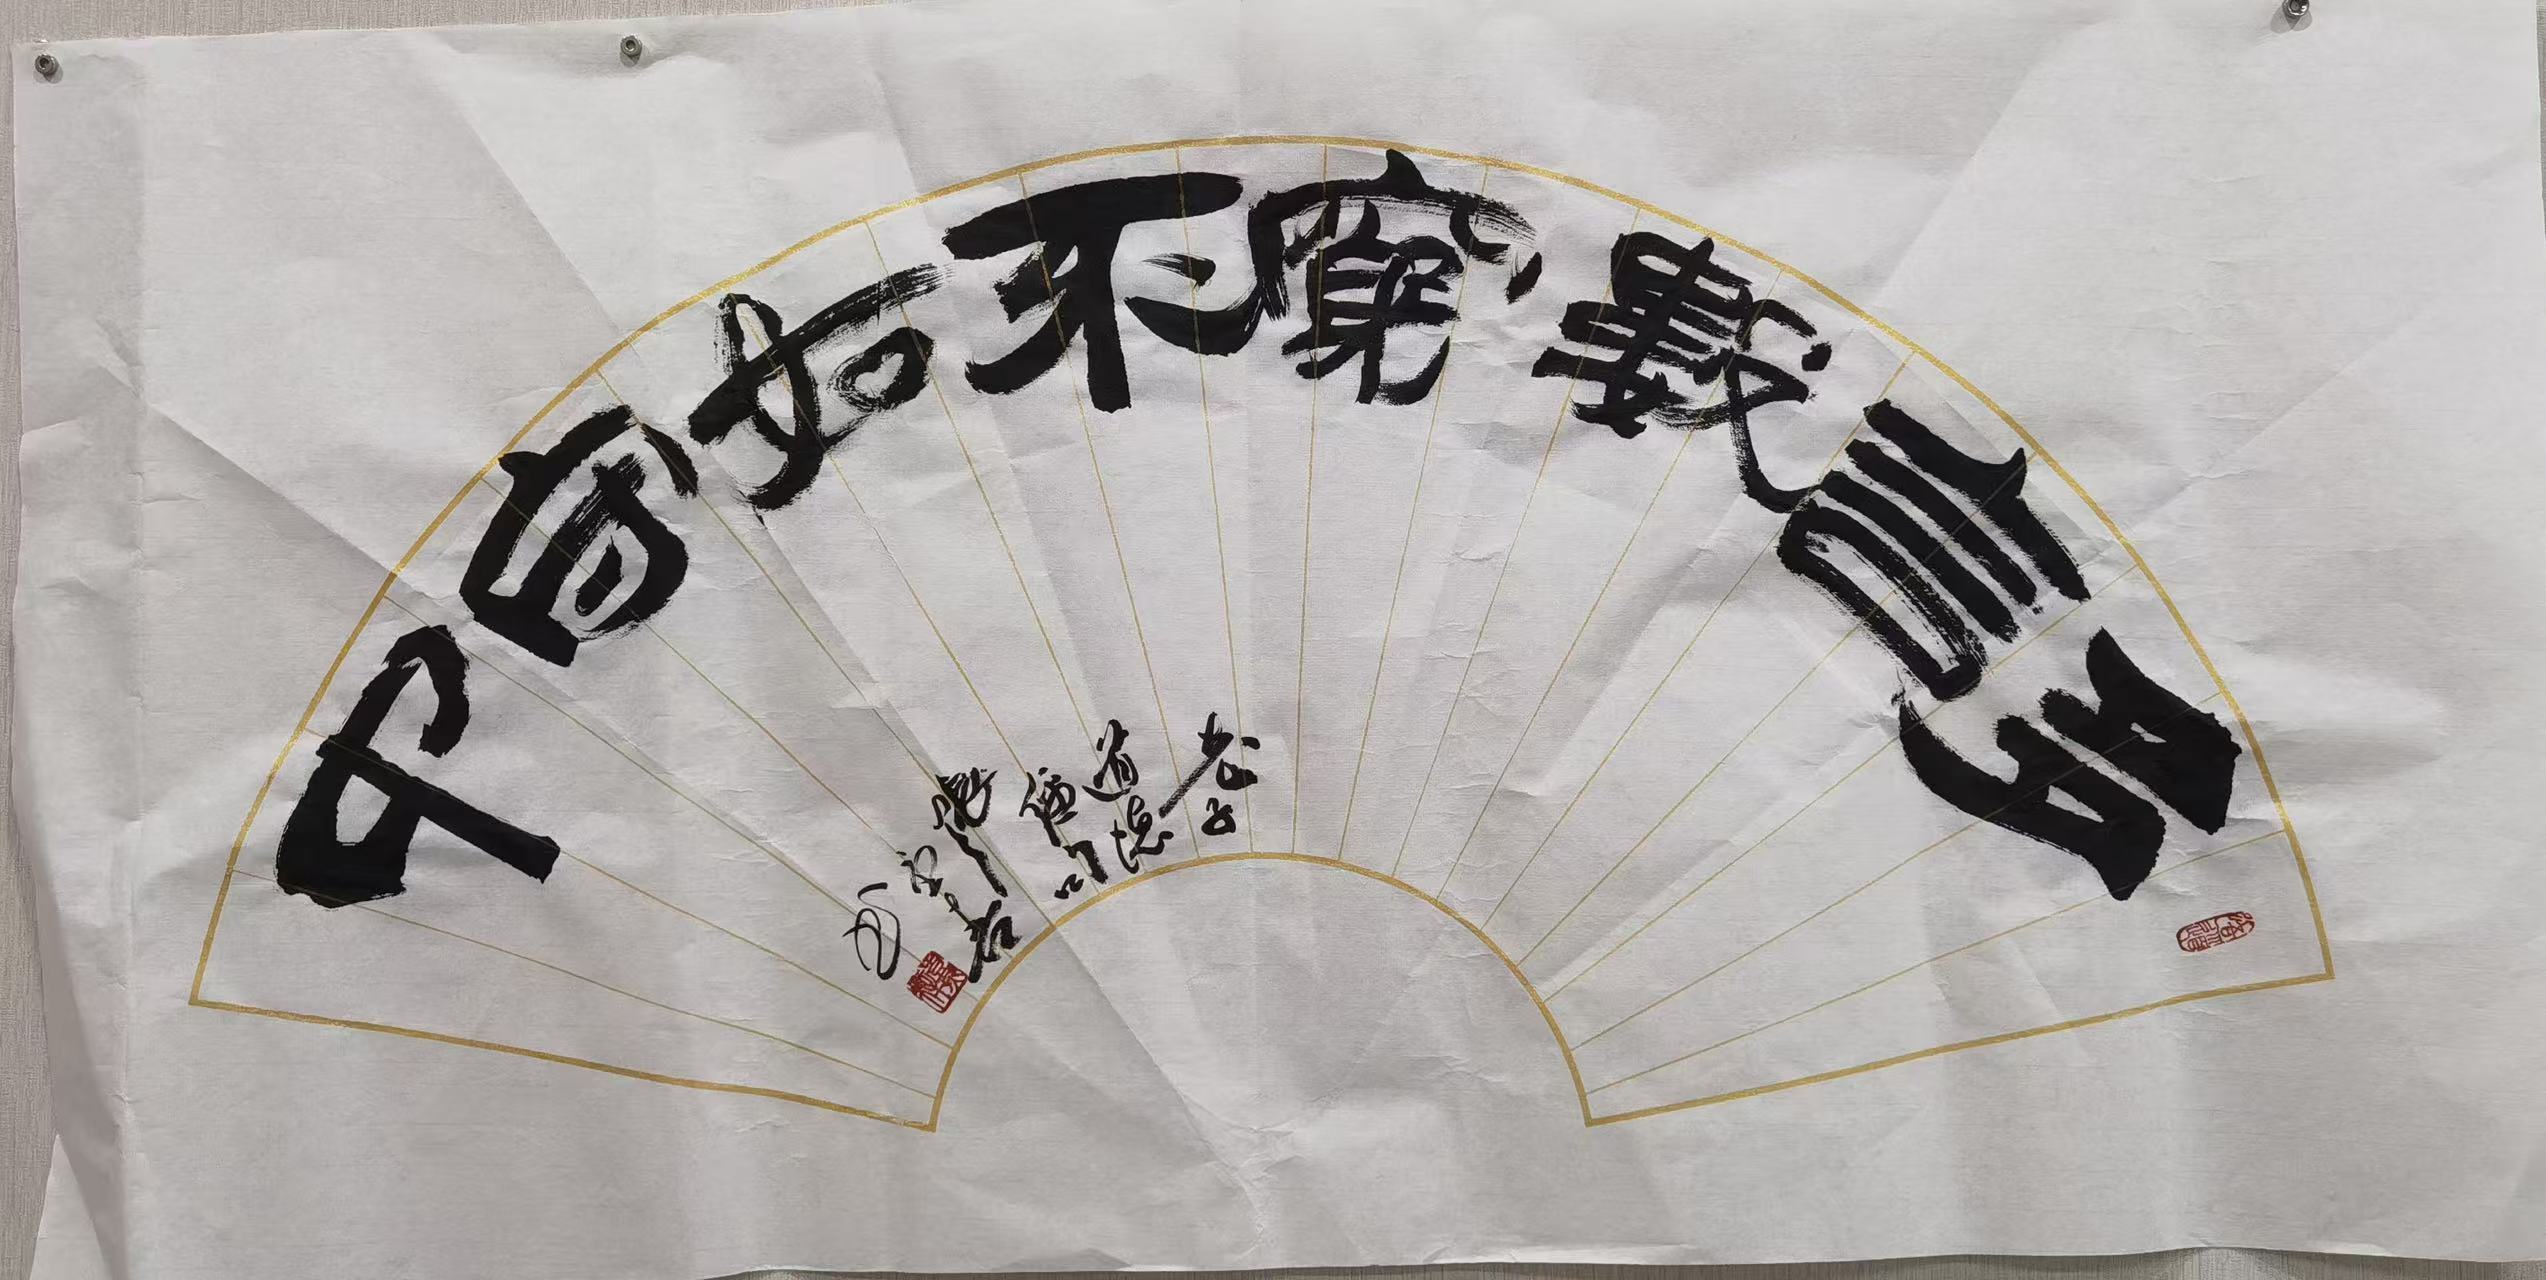 多言數窮不如守中
老子
道德